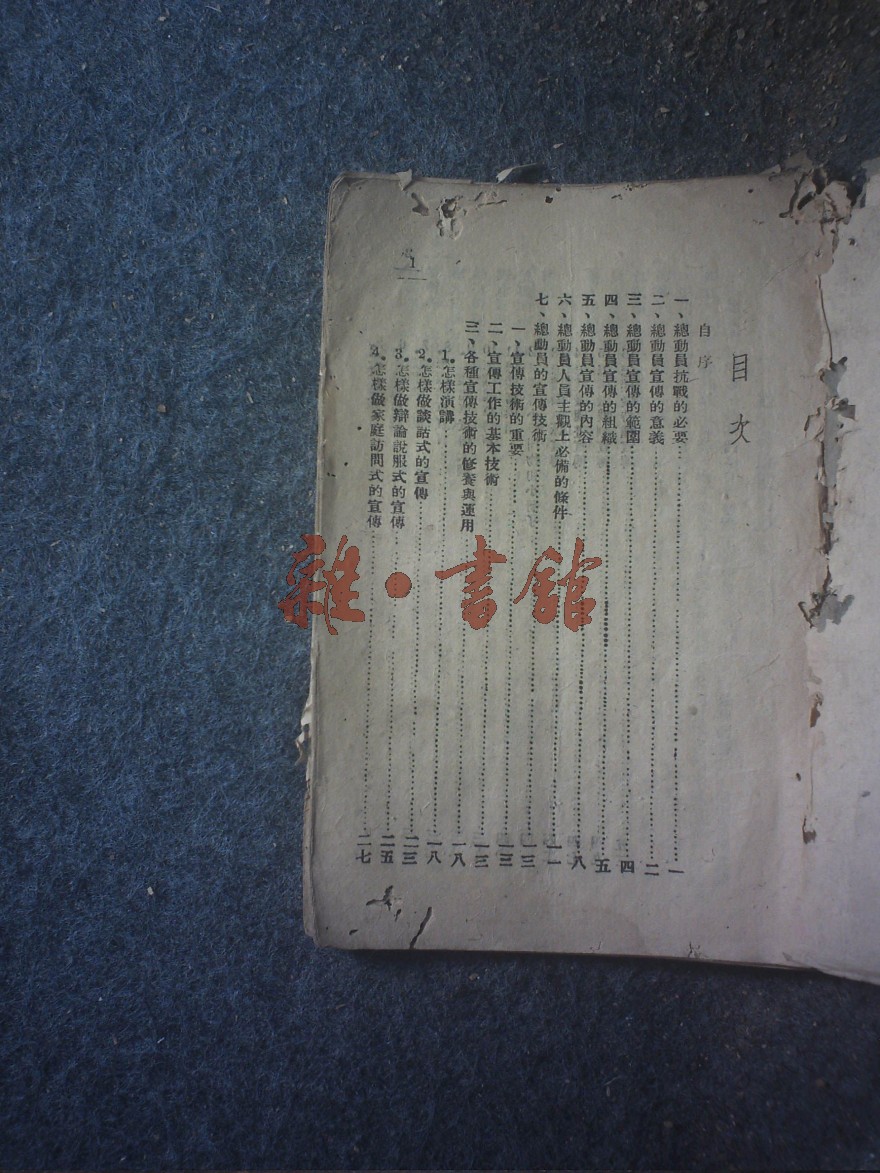 目次
自序
一、總動員抗戰的必要……一
二、總動員宣傳的意義……二
三、總動員宣傳的範圍……四
四、總動員宣傳的組織……五
五、總動員宣傳的內容……八
六、總動員人員主觀上必備的條件……一一
七、總動員的宣傳技術……一三
一、宣傳技術的重要……一三
二、宣傳工作的基本技術……一三
三、各種宣傳技術的修養與運用……一八
1.怎樣演講……一八
2.怎樣做談話式的宣傳……二三
3.怎樣做辯論說服式的宣傳……二五
4.怎樣做家庭訪問式的宣傳……二七
1
雜·書館